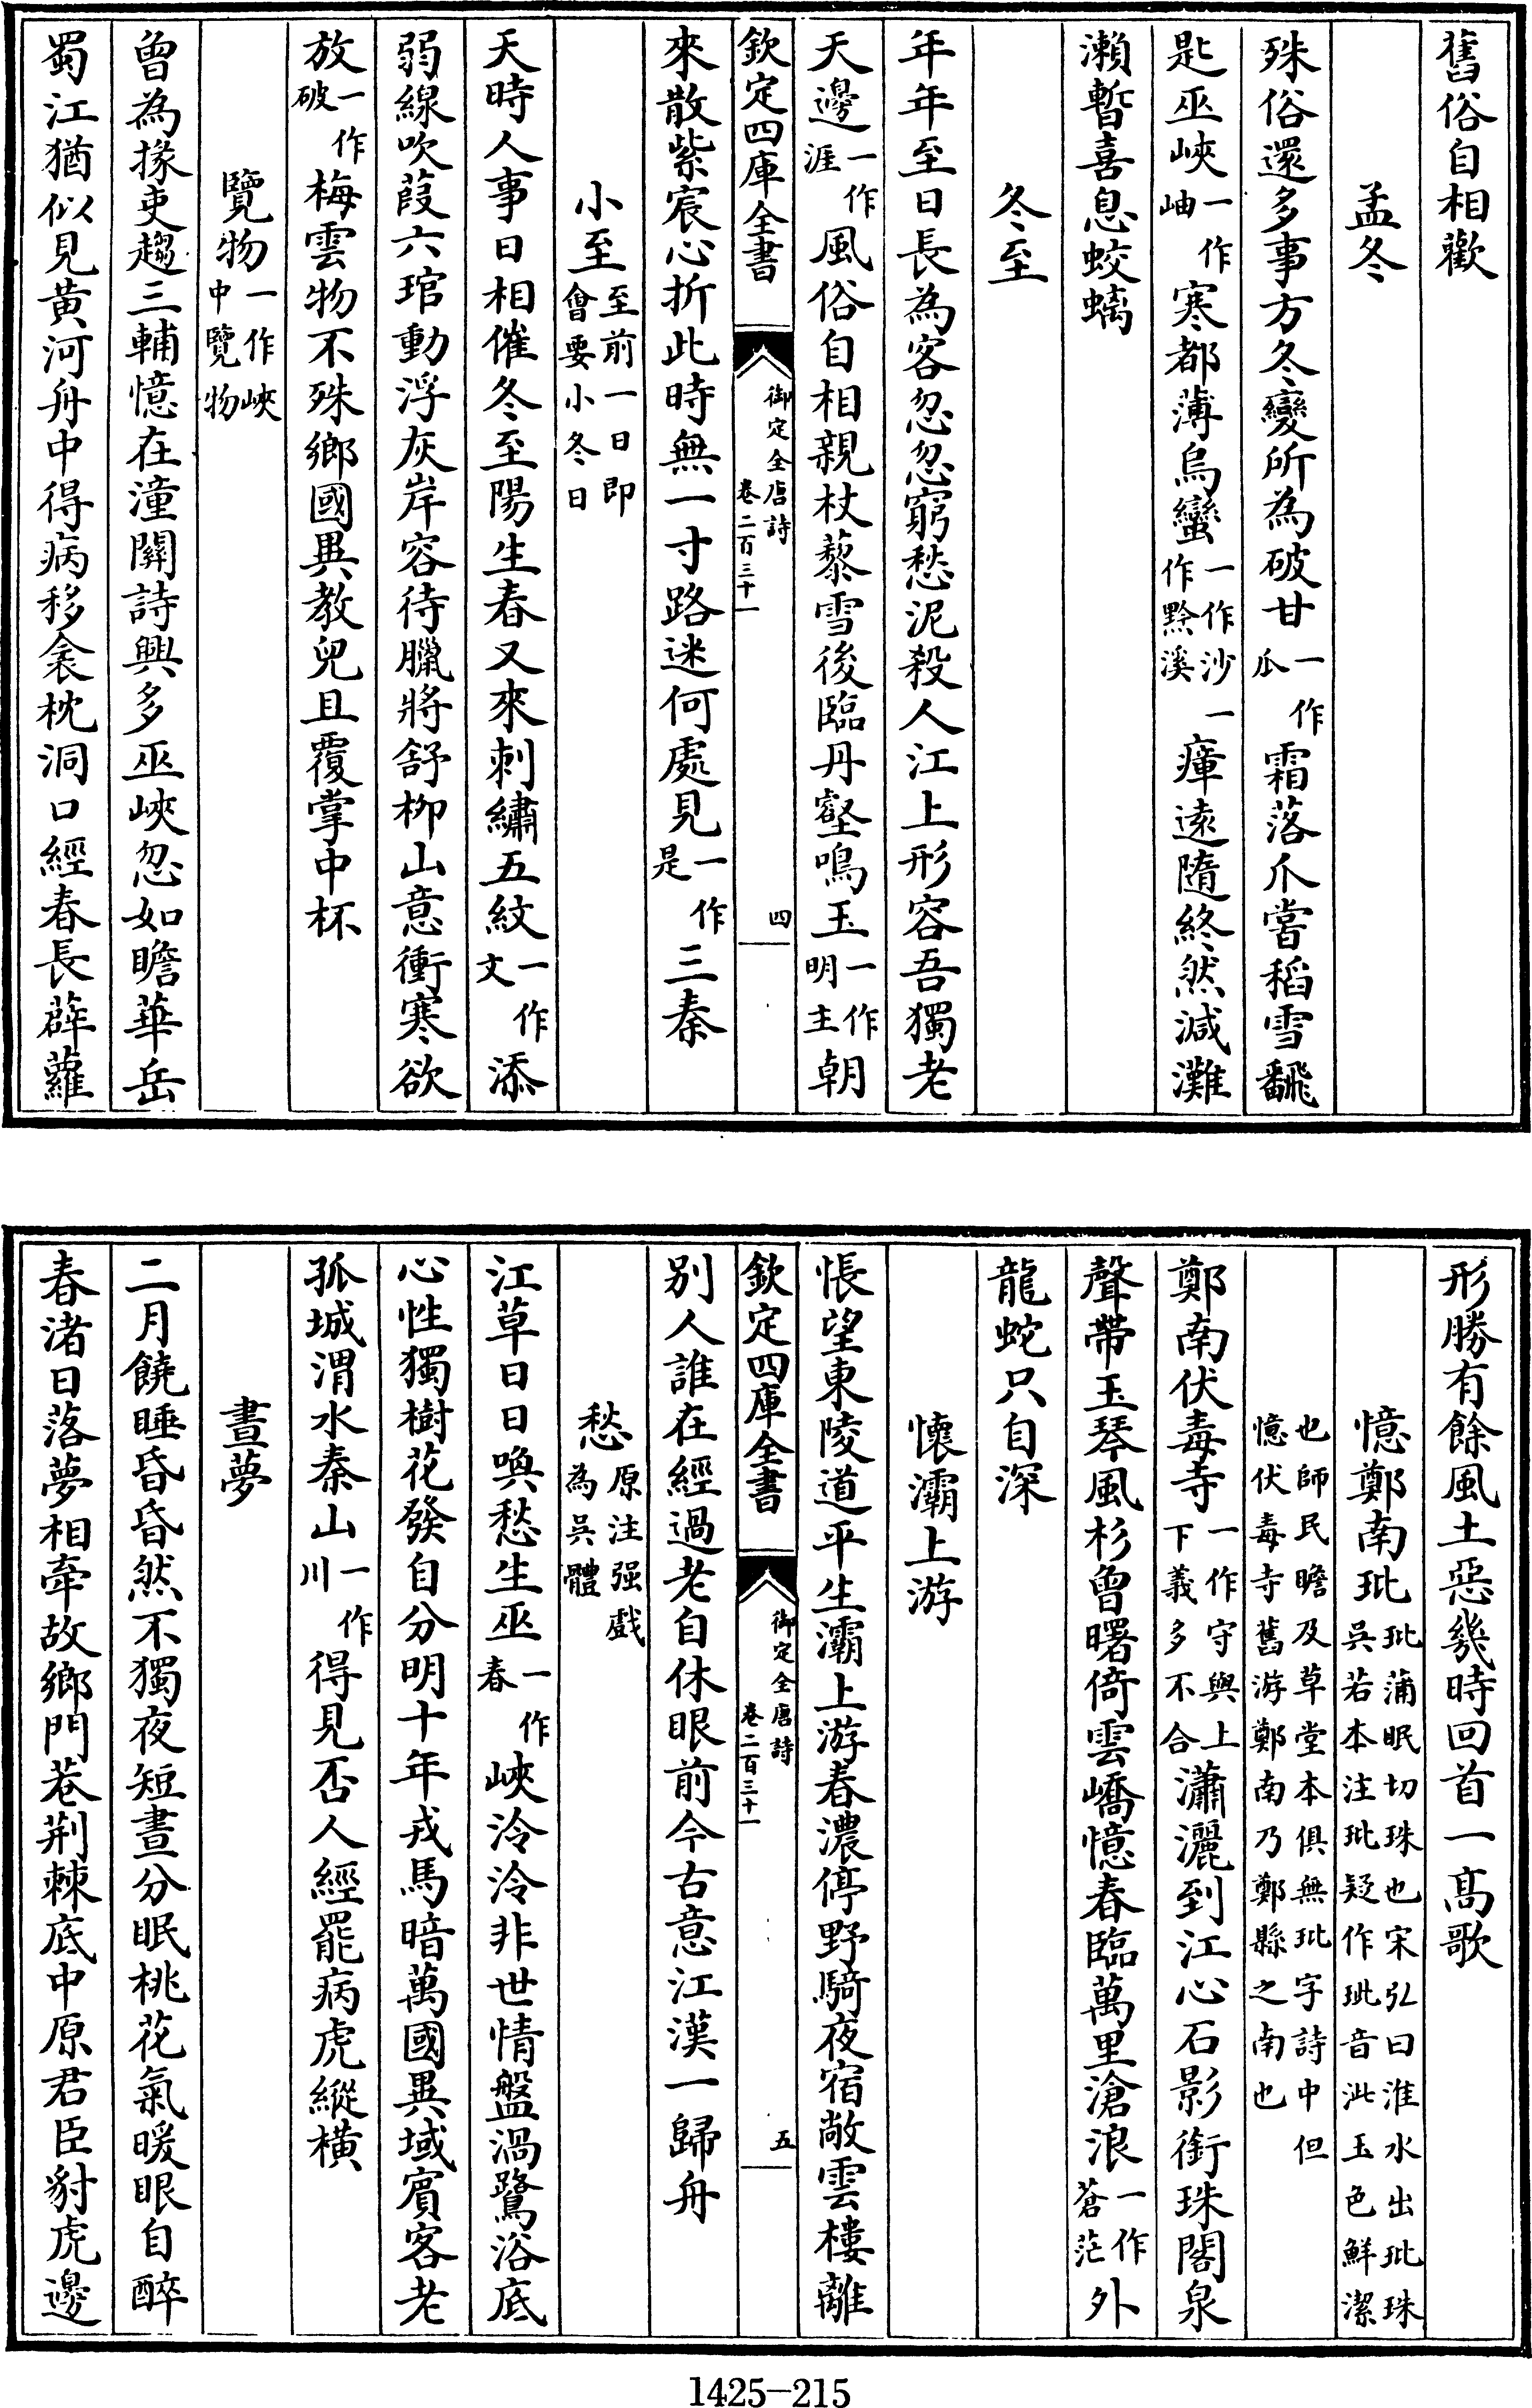 舊俗自相歡
孟冬
殊俗還多事方冬變所為破甘一作瓜霜落爪嘗稻雪飜
匙巫峽一作岫寒都薄烏蠻一作沙一作黔溪瘴遠隨終然減灘
瀨暫喜息蛟螭
冬至
年年至日長為客忽忽窮愁泥殺人江上形容吾獨老
天邊一作涯風俗自相親杖藜雪後臨丹壑鳴玉一作明主朝
欽定四庫全書 御定全唐詩 卷二百三十一 四
來散紫宸心折此時無一寸路迷何處見一作是三秦
小至至前一日即會要小冬日
天時人事日相催冬至陽生春又來刺繡五紋一作文添
弱線吹葭六琯動浮灰岸容待臘將舒柳山意衝寒欲
放一作破梅雲物不殊鄉國異教兒且覆掌中杯
覽物一作峽中覽物
曾為掾吏趨三輔憶在潼關詩興多巫峽忽如瞻華岳
蜀江猶似見黃河舟中得病移衾枕洞口經春長薜蘿
形勝有餘風土惡幾時回首一高歌
憶鄭南玭玭蒲眠切珠也宋弘曰淮水出玭珠吳若本注玭疑作玼音泚玉色鮮潔
也師民瞻及草堂本俱無玭字詩中但憶伏毒寺舊游鄭南乃鄭縣之南也
鄭南伏毒寺一作守與上下義多不合瀟灑到江心石影銜珠閣泉
聲帶玉琴風杉曾曙倚雲嶠憶春臨萬里滄浪一作蒼茫外
龍蛇只自深
懷灞上游
悵望東陵道平生灞上游春濃停野騎夜宿敞雲樓離
欽定四庫全書 御定全唐詩 卷二百三十一 五
別人誰在經過老自休眼前今古意江漢一歸舟
愁原注强戲為吳體
江草日日喚愁生巫一作春峽泠泠非世情盤渦鷺浴底
心性獨樹花發自分明十年戎馬暗萬國異域賓客老
孤城渭水秦山一作川得見否人經罷病虎縱橫
晝夢
二月饒睡昏昏然不獨夜短晝分眠桃花氣暖眼自醉
春渚日落夢相牽故鄉門巷荆棘底中原君臣豺虎邊
1425-215